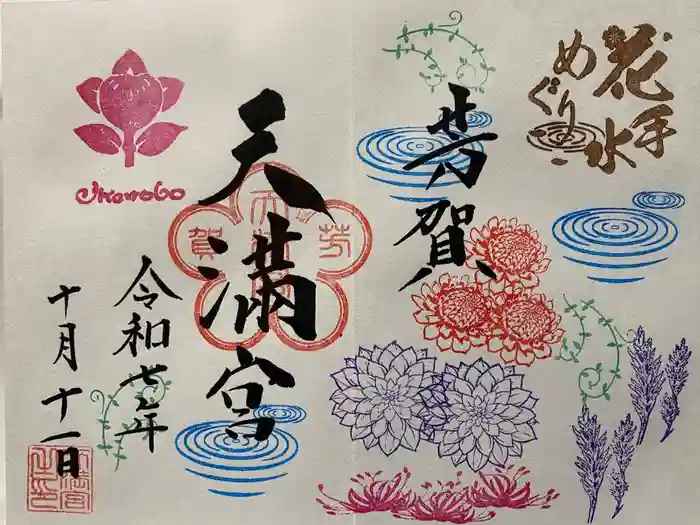 花手水
めぐり
芳賀
天満宮
芳
賀
Ikenobo
令和七年
十月十一日